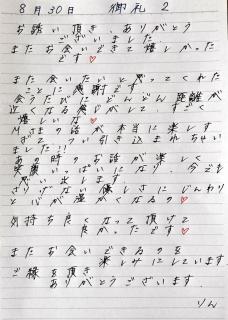 8月30日 御礼 2
お誘い頂き ありがとう
ございいました
またお会いできて嬉しかった
です♡
また会いたいと思ってくれた
ことに感謝です
会うたびにどんどん距離が
近くなる感じがして すごく
嬉しいな♡
Mさまの話が本当に楽しす
ぎて つい引き込まれちゃい
ました!!
あの時のお話が楽しく
笑顔いっぱいになり 今でも
思い出します
さりげない優しさにじんわり
と心が温かくなるの♡
気持ち良くなって頂けて
良かったです♡
またお会いできるのを
楽しみにしています
ご縁を頂き
ありがとうございます
りん